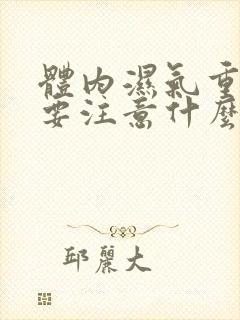 體內濕氣重
要注意什麼
邱麗大